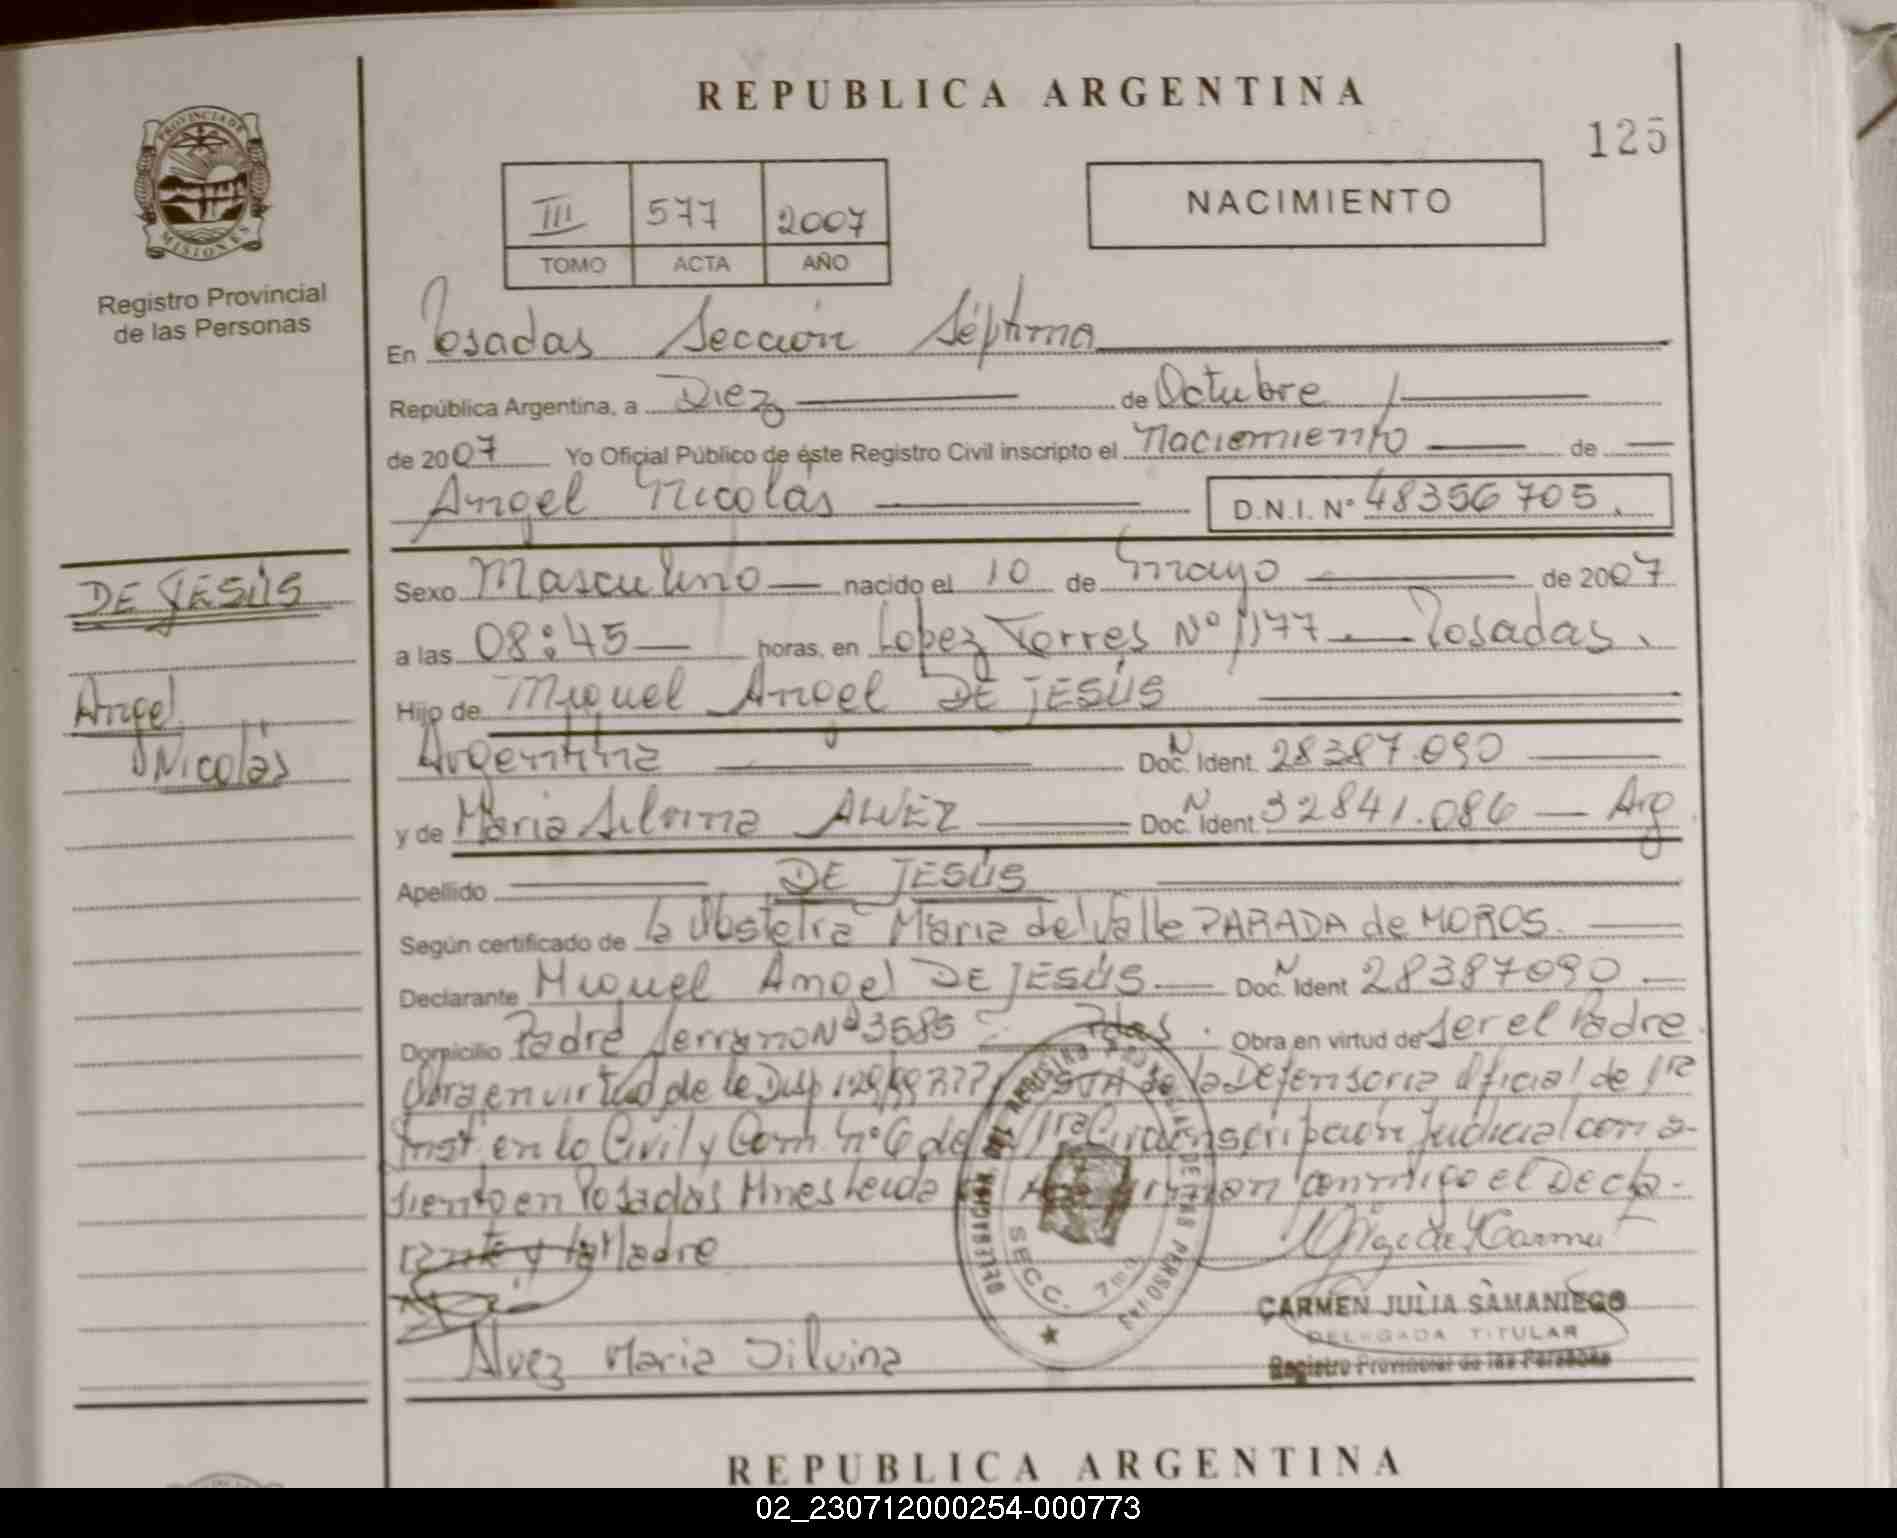 REPUBLICA ARGENTINA
125
PROVINCIA DE MISIONES
Registro Provincial
de las Personas
III 577 2007
TOMO ACTA AÑO
NACIMIENTO
En Posadas Sección Séptima
República Argentina, a Diez de Octubre
de 2007 Yo Oficial Público de éste Registro Civil inscripto el Naciemiento de
Angel Nicolás D.N.I. Nº 48356705.
DE JESÚS
Angel
Nicolás
Sexo Masculino nacido el 10 de Mayo de 2007
a las 08:45 horas, en Lopez Torres Nº 1177 Posadas.
Hijo de Miguel Angel DE JESÚS
Argentina Doc. N Ident. 28387.090
y de Maria Silvina ALVEZ Doc. N Ident. 32841.086 Arg
Apellido DE JESÚS
Según certificado de la Obstetra Maria del Valle PARADA de MOROS.
Declarante Miguel Angel DE JESÚS Doc. N Ident 28387090
Domicilio Padre Serrano Nº 3585 Pdas. Obra en virtud de Ser el Padre.
Obra en virtud de la Disp 129/99 de la Defensoria Oficial de 1ra
Inst. en lo Civil y Com. nº 6 de la 1ra Circunscripción Judicial con a-
siento en Posadas Mnes Leida firman conmigo el Decla-
rante y la Madre
SECC. 7ma
Alvez Maria Silvina
CARMEN JULIA SAMANIEGO
DELEGADA TITULAR
Registro Provincial de las Personas
REPUBLICA ARGENTINA
02_230712000254-000773